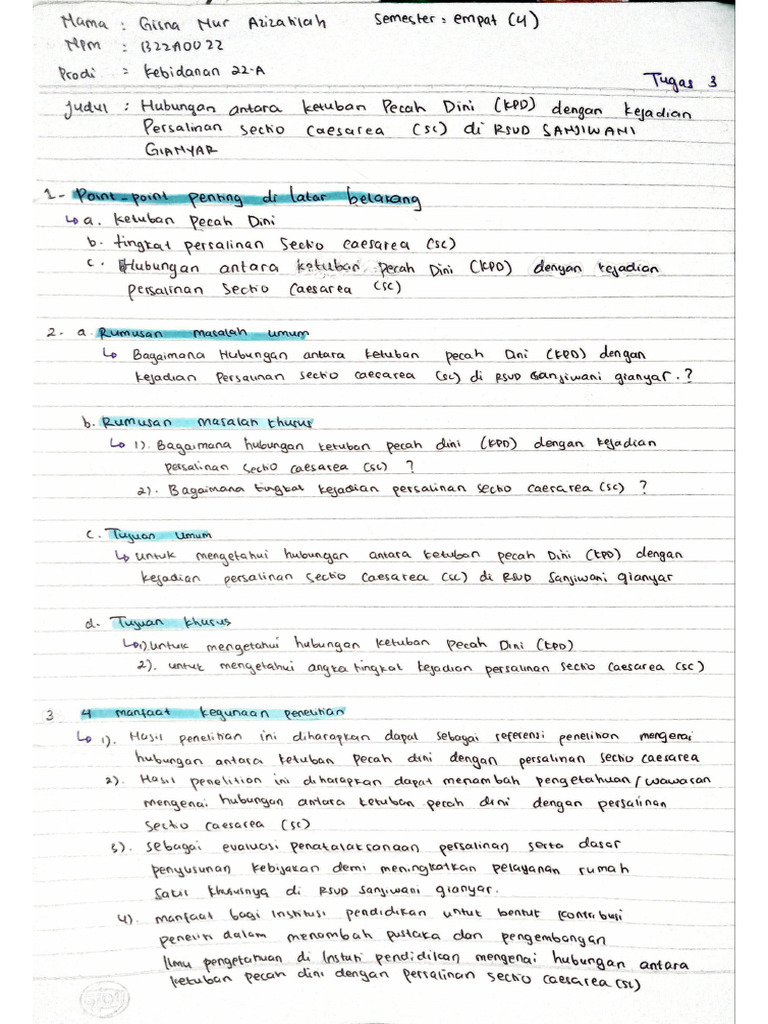 Nama : Gisna Nur Azizatilah Semester : empat (4)
NPM : B22A0022
Prodi : Kebidanan 22-A
Tugas 3
Judul : Hubungan antara ketuban Pecah Dini (KPD) dengan kejadian
Persalinan sectio caesarea (SC) di RSUD SANJIWANI
GIANYAR
1- Point-point penting di latar belakang
↳ a. ketuban pecah Dini
b. tingkat persalinan sectio caesarea (SC)
c. Hubungan antara ketuban pecah Dini (KPD) dengan kejadian
persalinan sectio caesarea (SC)
2. a. Rumusan masalah umum
↳ Bagaimana Hubungan antara ketuban pecah Dini (KPD) dengan
kejadian Persalinan sectio caesarea (SC) di RSUD Sanjiwani gianyar.?
b. Rumusan masalah khusus
↳ 1). Bagaimana hubungan ketuban pecah dini (KPD) dengan kejadian
persalinan sectio caesarea (SC) ?
2). Bagaimana tingkat kejadian persalinan sectio caesarea (SC) ?
c. Tujuan umum
↳ untuk mengetahui hubungan antara ketuban pecah Dini (KPD) dengan
kejadian persalinan sectio caesarea (SC) di RSUD Sanjiwani gianyar
d. Tujuan khusus
↳ 1) untuk mengetahui hubungan ketuban pecah Dini (KPD)
2). untuk mengetahui angka tingkat kejadian persalinan sectio caesarea (SC)
3 4 manfaat kegunaan penelitian
↳ 1). Hasil penelitian ini diharapkan dapat sebagai referensi penelitian mengenai
hubungan antara ketuban pecah dini dengan persalinan sectio caesarea
2). Hasil penelitian ini diharapkan dapat menambah pengetahuan/wawasan
mengenai hubungan antara ketuban pecah dini dengan persalinan
sectio caesarea (SC)
3). sebagai evaluasi penatalaksanaan persalinan serta dasar
penyusunan kebijakan demi meningkatkan pelayanan rumah
sakit khususnya di RSUD Sanjiwani gianyar.
4). manfaat bagi institusi pendidikan untuk bentuk kontribusi
peneliti dalam menambah pustaka dan pengembangan
Ilmu pengetahuan di Instuti pendidikan mengenai hubungan antara
ketuban pecah dini dengan persalinan sectio caesarea (SC)